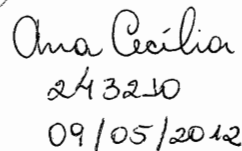 Ana Cecília
243210
09/05/2012